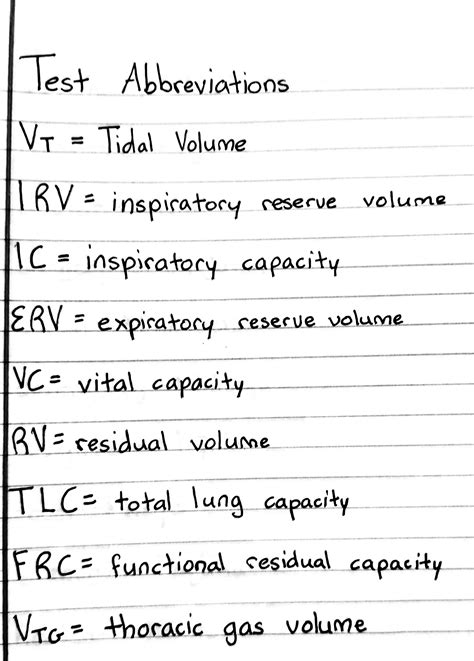 Test Abbreviations
VT = Tidal Volume
IRV = inspiratory reserve volume
IC = inspiratory capacity
ERV = expiratory reserve volume
VC = vital capacity
RV = residual volume
TLC = total lung capacity
FRC = functional residual capacity
VTG = thoracic gas volume